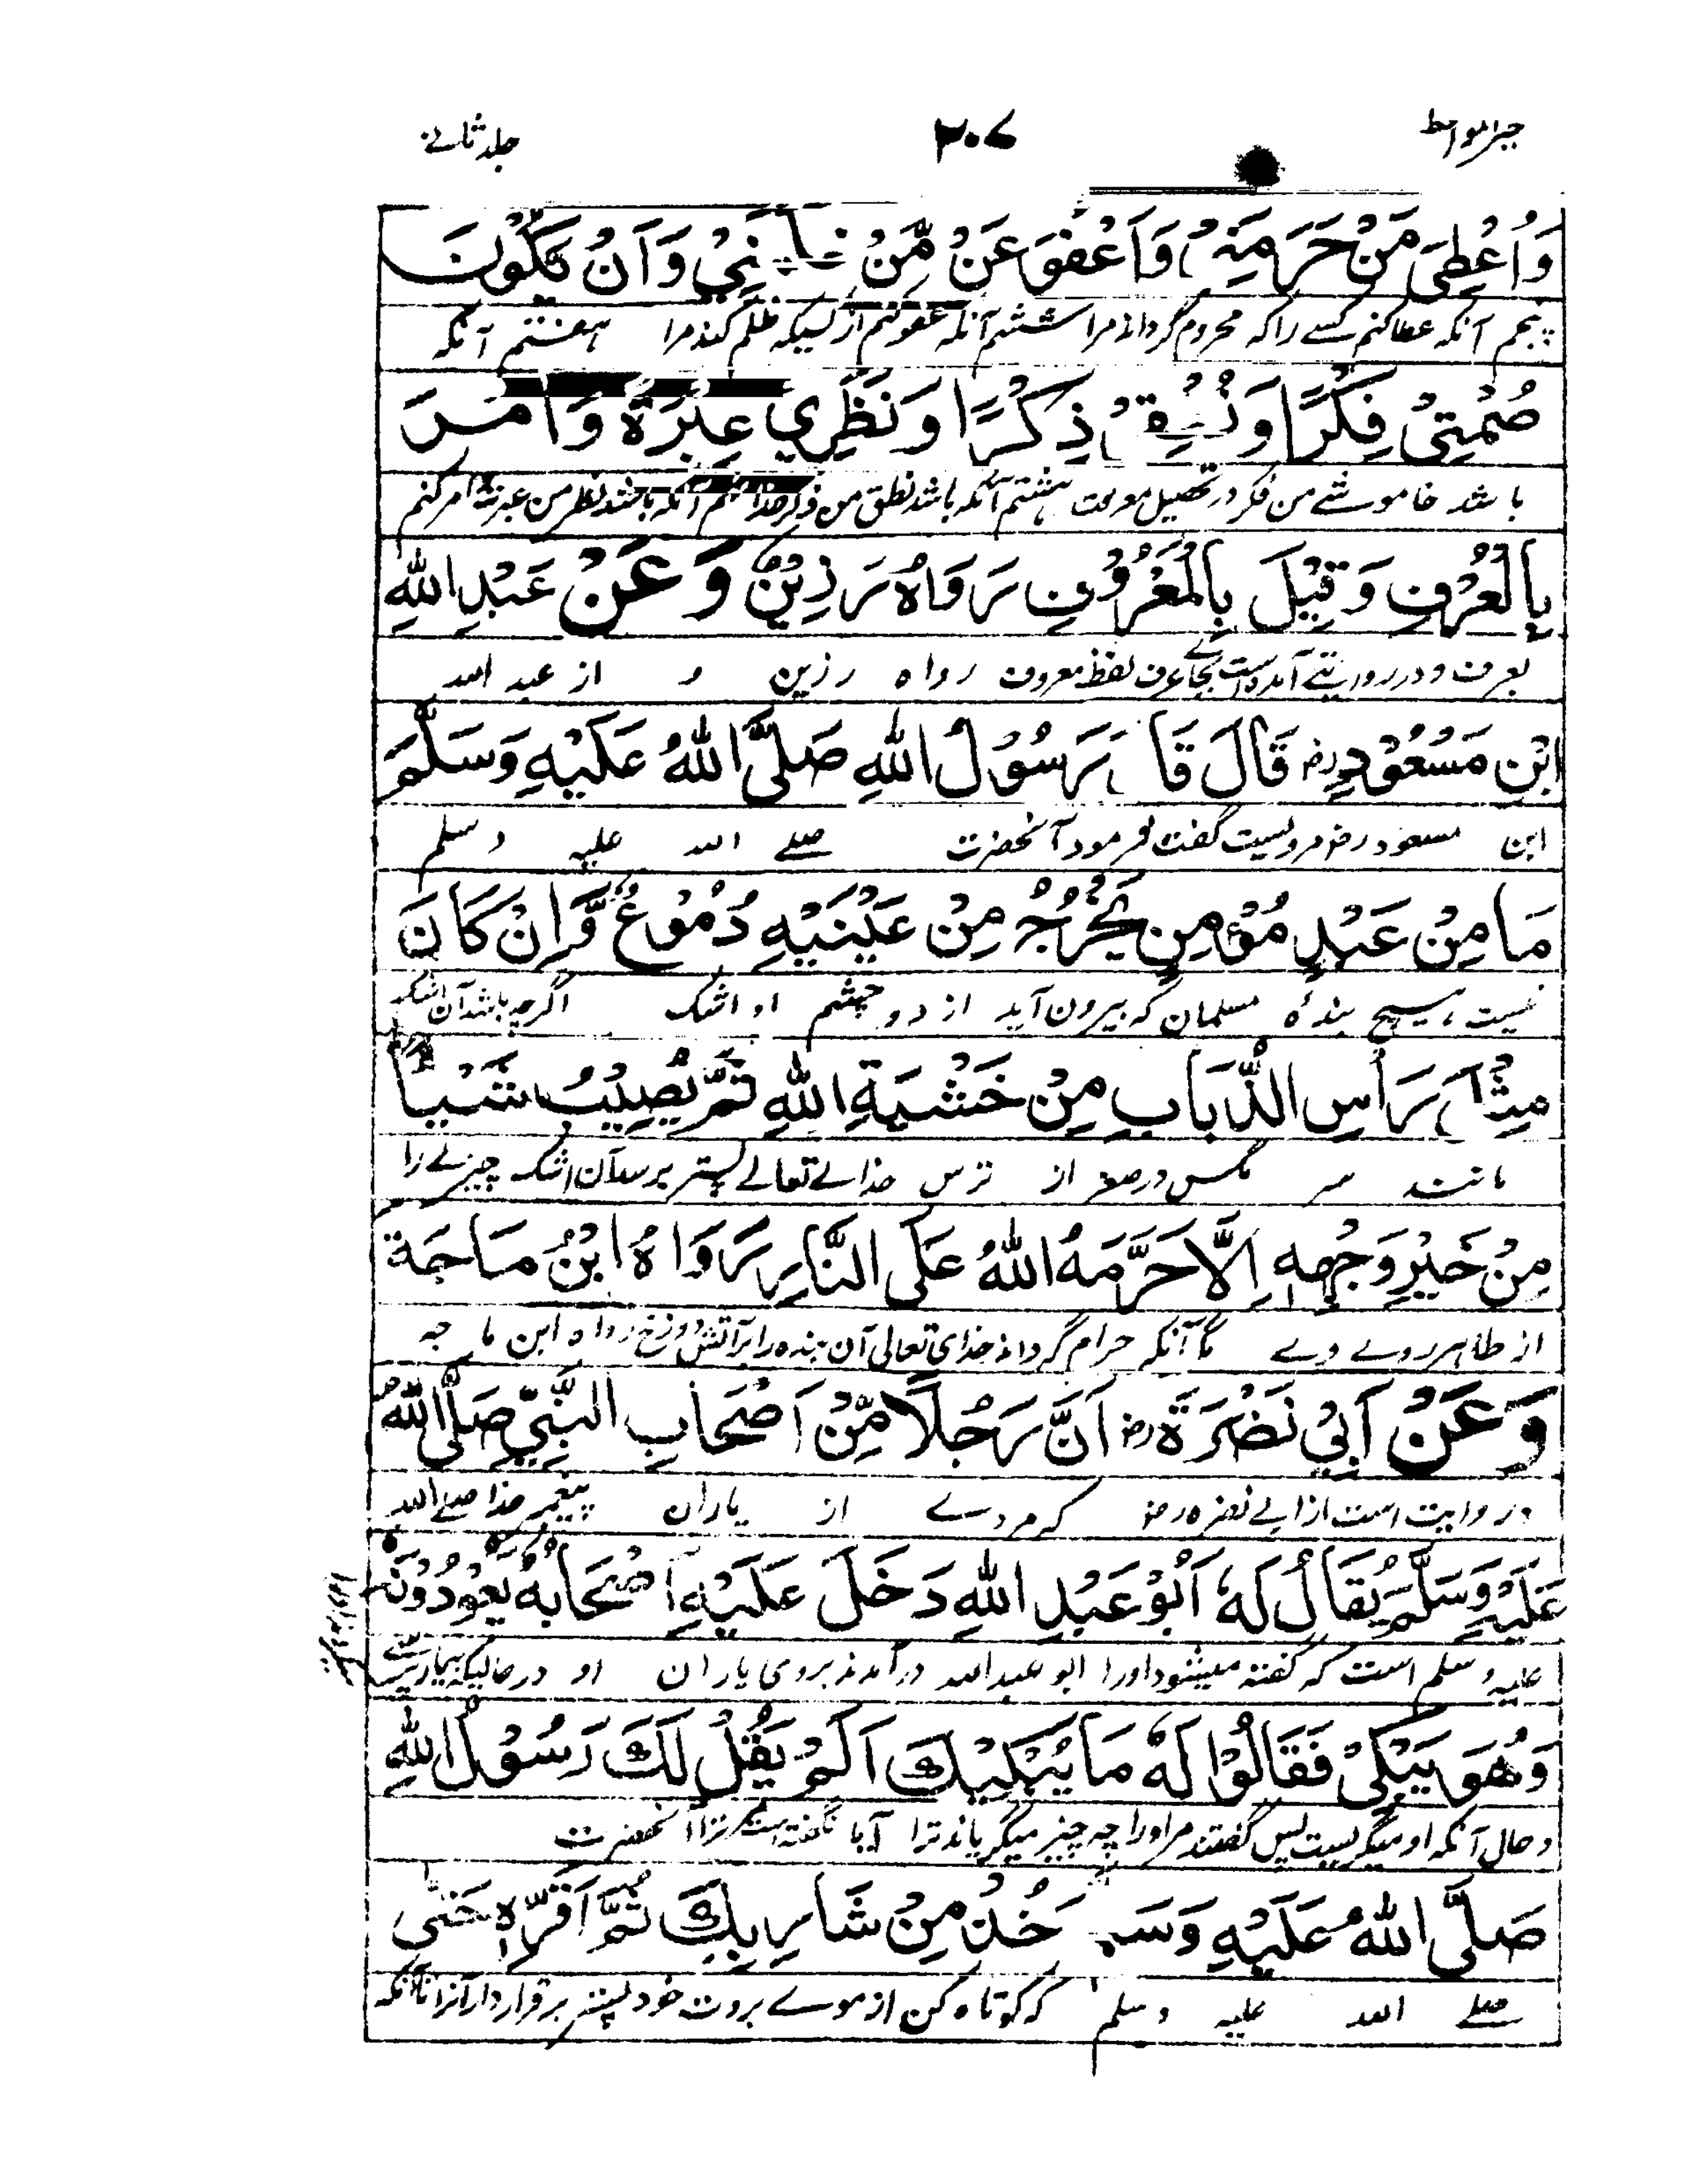 خیر المواعظ ۲۰۷ جلد ثانے
وَاُعْطِیَ مَنْ حَرَمَنِیْ وَاَعْفُوَ عَنْ مَّنْ نِیْ وَاَنْ یَّکُوْنَ
پنجم آنکہ عطا کنم کسے را کہ محروم گرداند مرا ششم آنکہ عفو کنم از کسیکہ ظلم کند مرا ہفتم آنکہ
صُمْتِیْ فِکْرًا وَنُطْقِیْ ذِکْرًا وَنَظَرِیْ عِبْرَةً وَاٰمُرَ
باشد خاموشے من فکر در تحصیل معرفت ہشتم آنکہ باشد نطق من ذکر خدا نہم آنکہ باشد نظر من عبرت امر کنم
بِالْعُرْفِ وَقِیْلَ بِالْمَعْرُوْفِ رَوَاهُ رَزِیْنٌ وَعَنْ عَبْدِ اللهِ
بعرف و در روایتے آمدہ است بجائے عرف لفظ معروف رواہ رزین و از عبد اللہ
ابْنِ مَسْعُوْدٍ رض قَالَ قَالَ رَسُوْلُ اللهِ صَلَّی اللهُ عَلَیْهِ وَسَلَّمَ
ابن مسعود رض مرویست گفت فرمود آنحضرت صلے اللہ علیہ وسلم
مَا مِنْ عَبْدٍ مُؤْمِنٍ یَخْرُجُ مِنْ عَیْنَیْهِ دُمُوْعٌ وَّاِنْ کَانَ
نیست ہیچ بندۂ مسلمان کہ بیرون آید از دو چشم او اشک اگرچہ باشد آن اشک
مِثْلَ رَأْسِ الذُّبَابِ مِنْ خَشْیَةِ اللهِ ثُمَّ یُصِیْبُ شَیْئًا
مانند سر مگس در صغر از ترس خدائے تعالے پستر برسد آن اشک چیزے را
مِنْ حَیْرِ وَجْهِهٖ اِلَّا حَرَّمَهُ اللهُ عَلَی النَّارِ رَوَاهُ ابْنُ مَاجَة
از ظاہر روے وے مگر آنکہ حرام گرداند خدای تعالی آن بندہ را بر آتش دوزخ رواہ ابن ماجہ
وَعَنْ اَبِیْ نَضْرَةَ رض اَنَّ رَجُلًا مِّنْ اَصْحَابِ النَّبِیِّ صَلَّی اللهُ
و روایت است از ابے نضرہ رض کہ مردے از یاران پیغمبر خدا صلے اللہ
عَلَیْهِ وَسَلَّمَ یُقَالُ لَهٗ اَبُوْ عَبْدِ اللهِ دَخَلَ عَلَیْهِ اَصْحَابُهٗ یَعُوْدُوْنَهٗ
علیہ وسلم است کہ گفتہ میشود او را ابو عبد اللہ در آمدند بروی یاران او در حالیکہ بیمار پرسے
میکردند او را
وَهُوَ یَبْکِیْ فَقَالُوْا لَهٗ مَا یُبْکِیْكَ اَلَمْ یَقُلْ لَكَ رَسُوْلُ اللهِ
و حال آنکہ او میگریست پس گفتند مر او را چہ چیز میگریاند ترا آیا نگفتہ است ترا آنحضرت
صَلَّی اللهُ عَلَیْهِ وَسَلَّمَ خُذْ مِنْ شَارِبِكَ ثُمَّ اَقِرَّهٗ حَتّٰی
صلے اللہ علیہ وسلم کہ کوتاہ کن از موے بروت خود پستر برقرار دار آنرا تا آنکہ